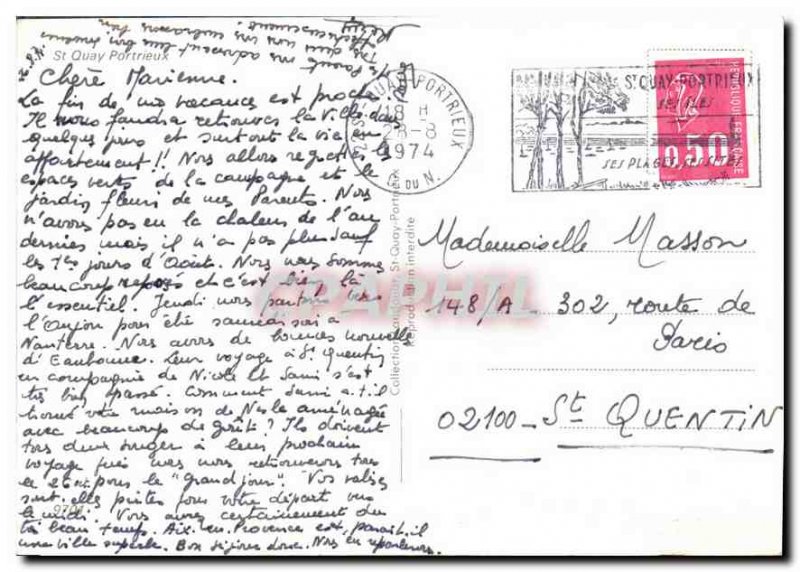 St Quay Portrieux
Chère Marienne.
La fin de nos vacances est proche
Il nous faudra retrouver la Ville dans
quelques jours et surtout la vie en
appartement!! Nous allons regretter les
espaces verts de la campagne et le
jardin fleuri de mes Parents. Nous
n'avons pas eu la chaleur de l'an
dernier mais il n'a pas plu sauf
les 1ers jours d'Août. Nous nous sommes
beaucoup reposés et c'est bien là
l'essentiel. Jeudi nous partons vers
l'Anjou pour être samedi soir à
Nanterre. Nous avons de bonnes nouvelles
d'Eaubonne. Leur voyage à St Quentin
en compagnie de Nicole et Sami s'est
très bien passé. Comment Sami a-t-il
trouvé votre maison de Nesle aménagée
avec beaucoup de goût? Ils doivent
tous deux songer à leur prochain
voyage puis nous nous retrouverons tous
le pour le "grand jour". Vos valises
sont-elles prêtes pour votre départ vers
le midi. Vous aurez certainement du
très beau temps. Aix-en-Provence est, paraît-il
une ville superbe. Bon séjour donc. Nous en reparlerons.
9701
ST QUAY PORTRIEUX
18 H
1974
C. DU N.
ST QUAY-PORTRIEUX
SES ILES
SES PLAGES, SES SITES
REPUBLIQUE FRANCAISE
0,50
Reproduction interdite
Mademoiselle Masson
148/A - 302, route de
Paris
02100 - St QUENTIN